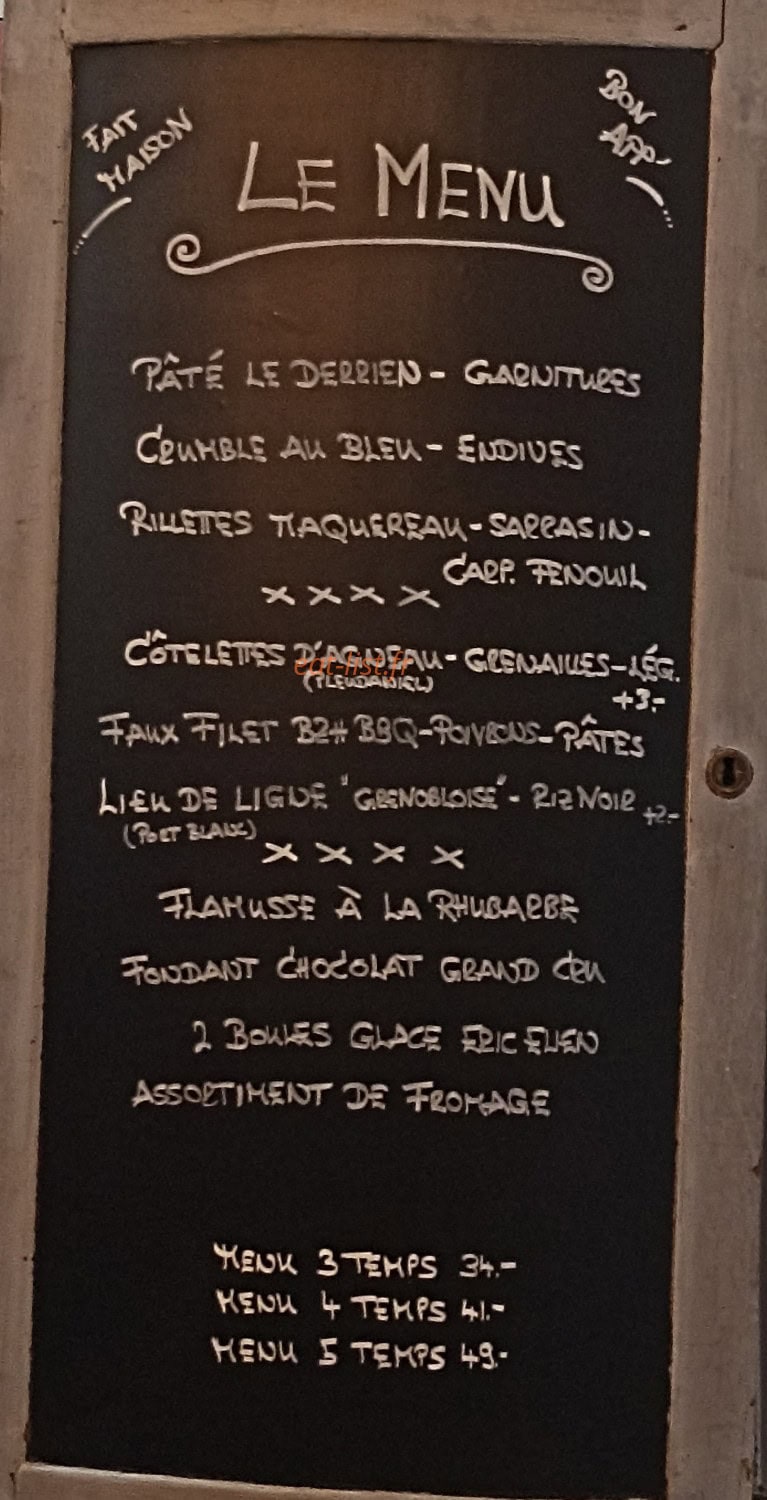 FAIT
MAISON
BON
APP'
LE MENU
PÂTÉ LE DERRIEN - GARNITURES
CRUMBLE AU BLEU - ENDIVES
RILLETTES MAQUEREAU - SARRASIN -
CARP. FENOUIL
x x x x
CÔTELETTES D'AGNEAU - GRENAILLES - LÉG.
eat-list.fr
(PLEUDANIEL)
+3.-
FAUX FILET BZH BBQ - POIVRONS - PÂTES
LIEU DE LIGNE "GRENOBLOISE" - RIZ NOIR +2.-
(PORT BLANC)
x x x x
FLAMUSSE À LA RHUBARBE
FONDANT CHOCOLAT GRAND CRU
2 BOULES GLACE ERIC ELIEN
ASSORTIMENT DE FROMAGE
MENU 3 TEMPS 34.-
MENU 4 TEMPS 41.-
MENU 5 TEMPS 49.-